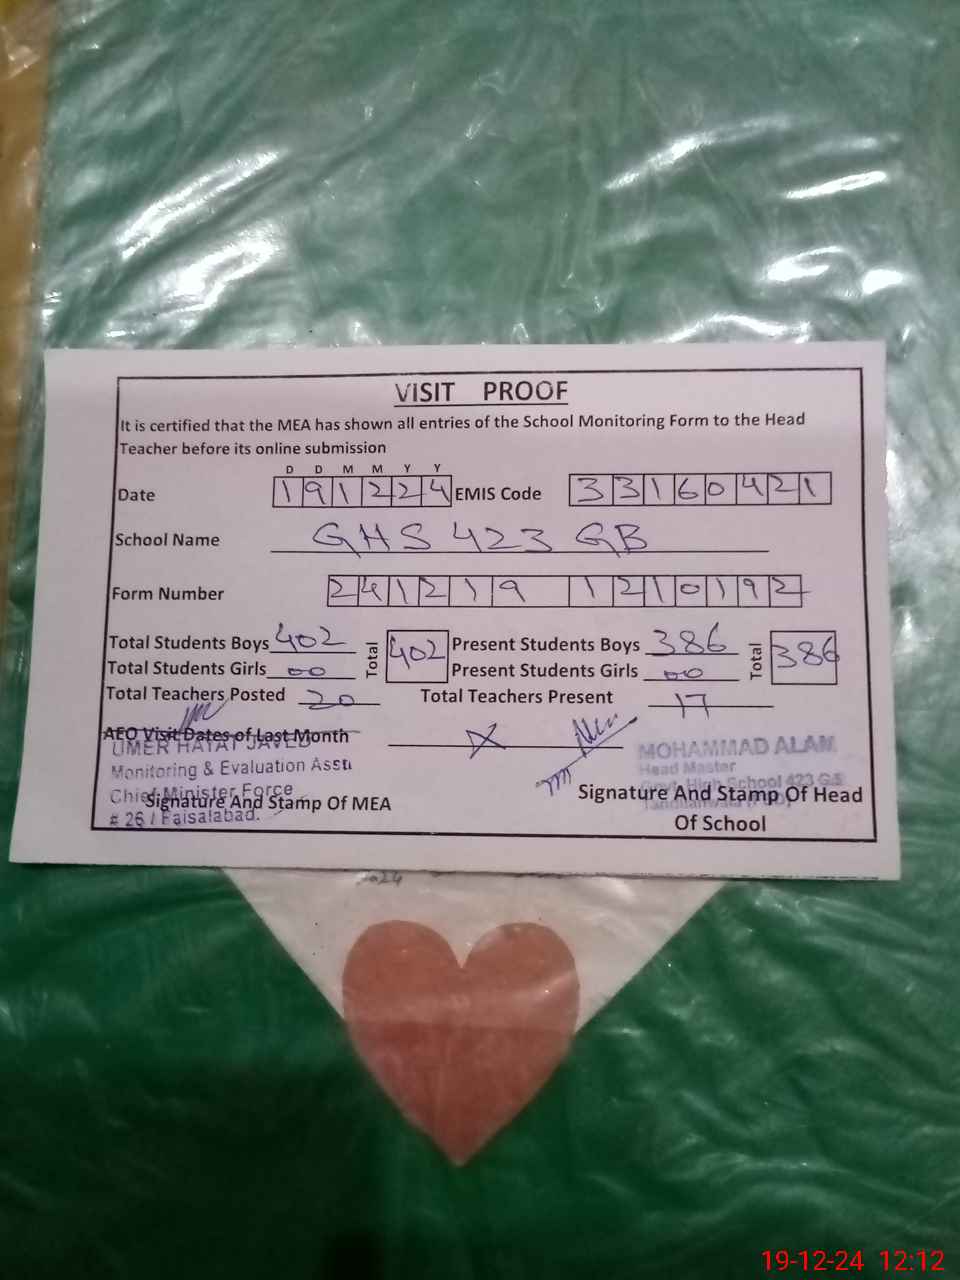 VISIT PROOF
It is certified that the MEA has shown all entries of the School Monitoring Form to the Head
Teacher before its online submission
D D M M Y Y
Date 191224 EMIS Code 33160421
School Name GHS 423 GB
Form Number 241219 1210192
Total Students Boys 402 Total 402 Present Students Boys 386 Total 386
Total Students Girls 00 Present Students Girls 00
Total Teachers Posted 20 Total Teachers Present 17
AEO Visit Dates of Last Month X
UMER HAYAT JAVED
Monitoring & Evaluation Asstt
Chief Minister Force
# 26 / Faisalabad.
Signature And Stamp Of MEA
MOHAMMAD ALAM
Head Master
Govt. High School 423 G.B
Tandlianwala
Signature And Stamp Of Head
Of School
2024
19-12-24 12:12